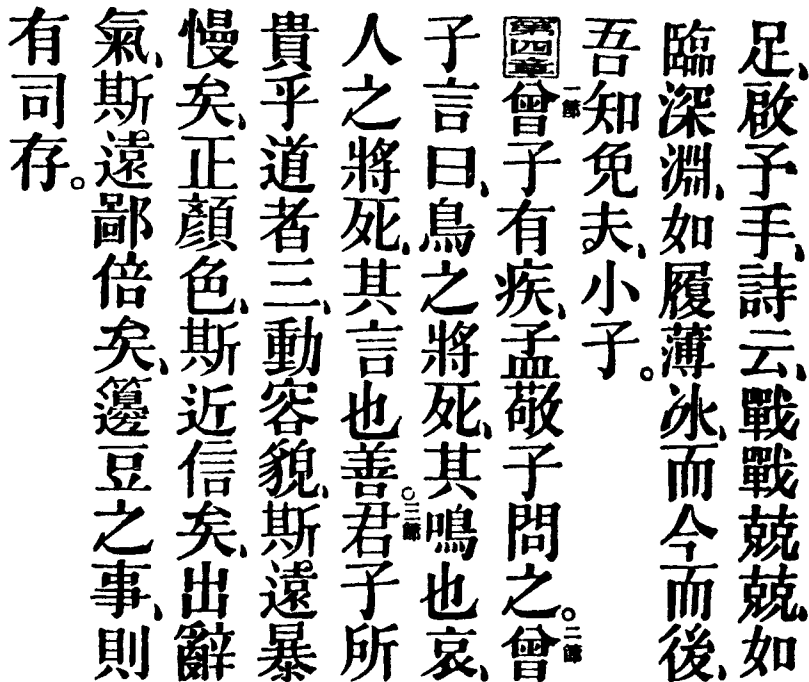 足、啟予手、詩云、戰戰兢兢、如
臨深淵、如履薄冰、而今而後、
吾知免夫、小子。
第四章一節曾子有疾、孟敬子問之。二節曾
子言曰、鳥之將死、其鳴也哀、
人之將死、其言也善。三節君子所
貴乎道者三、動容貌、斯遠暴
慢矣、正顏色、斯近信矣、出辭
氣、斯遠鄙倍矣、籩豆之事、則
有司存。